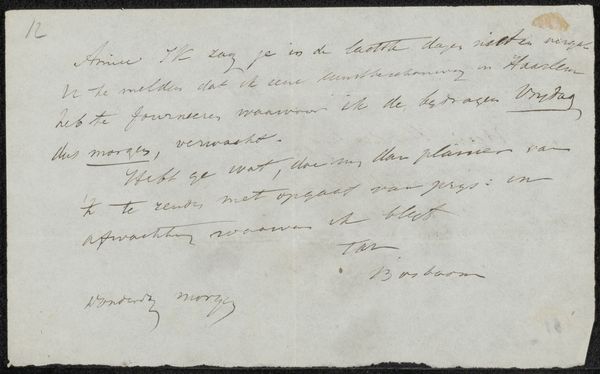 12
Amice Ik zag je in de laatste dagen niet en vergat
U te melden dat ik eene kunstbeschouwing in Haarlem
heb te fourneeren waarvoor ik de bydragen Vrydag
dus morgen, verwacht.
Hebt ge wat, doe my dan plaisier van
't te zenden met opgaaf van prys: in
afwachting waarvan ik blyf
Tav
Bosboom
Donderdag morgen